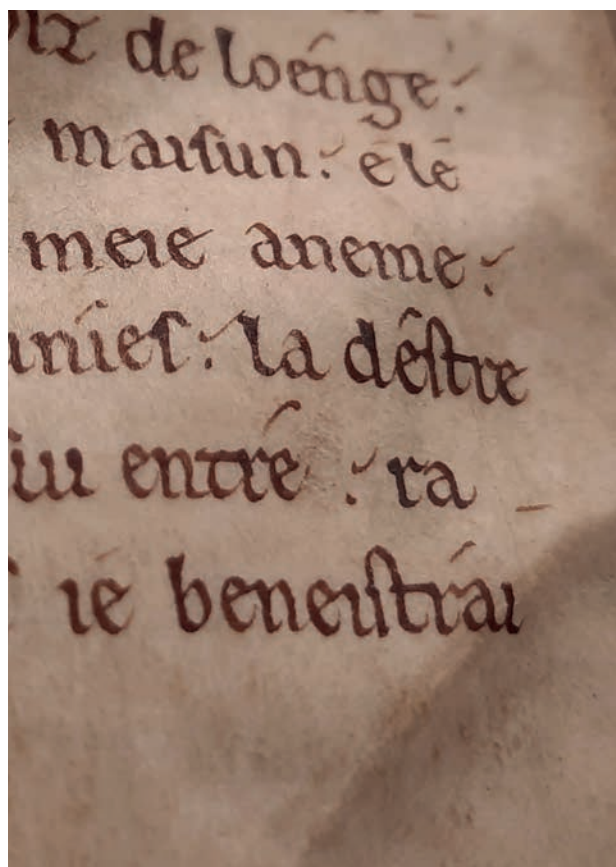 de loenge:
maisun: e le
meie aneme:
la destre
entre: ra
ie beneistrai